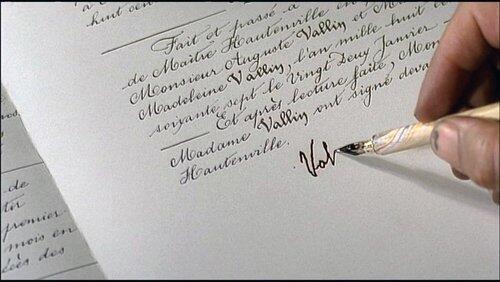 huit cent
Fait et passé à
de Maître Hautenville en
Monsieur Auguste Vallin et M
Madeleine Vallin, l'an mille huit c
soixante sept le Vingt Deux Janvier
Et après lecture faite, Mon
Madame Vallin ont signé deva
Hautenville.
Val
de
premier
mois en
des